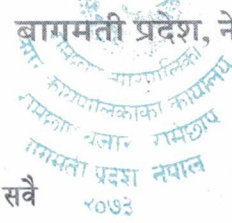 बागमती प्रदेश, ने
नगरपालिका
कार्यपालिकाको कार्यालय
रामेछाप बजार रामेछाप
बागमती प्रदेश नेपाल
२०७३
सवै